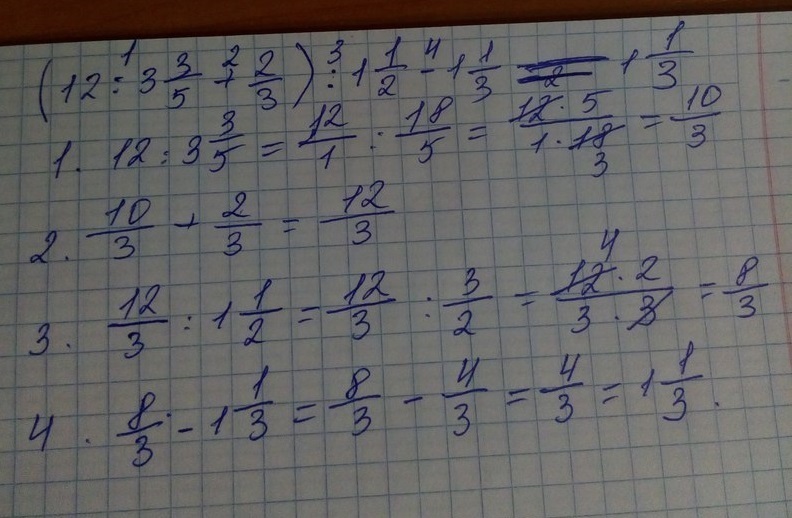 (12 : 3 3/5 + 2/3) : 1 1/2 - 1 1/3 = 1 1/3
1. 12 : 3 3/5 = 12/1 : 18/5 = 12 · 5 / 1 · 18 = 10/3
2. 10/3 + 2/3 = 12/3
3. 12/3 : 1 1/2 = 12/3 : 3/2 = 12 · 2 / 3 · 3 = 8/3
4. 8/3 - 1 1/3 = 8/3 - 4/3 = 4/3 = 1 1/3.